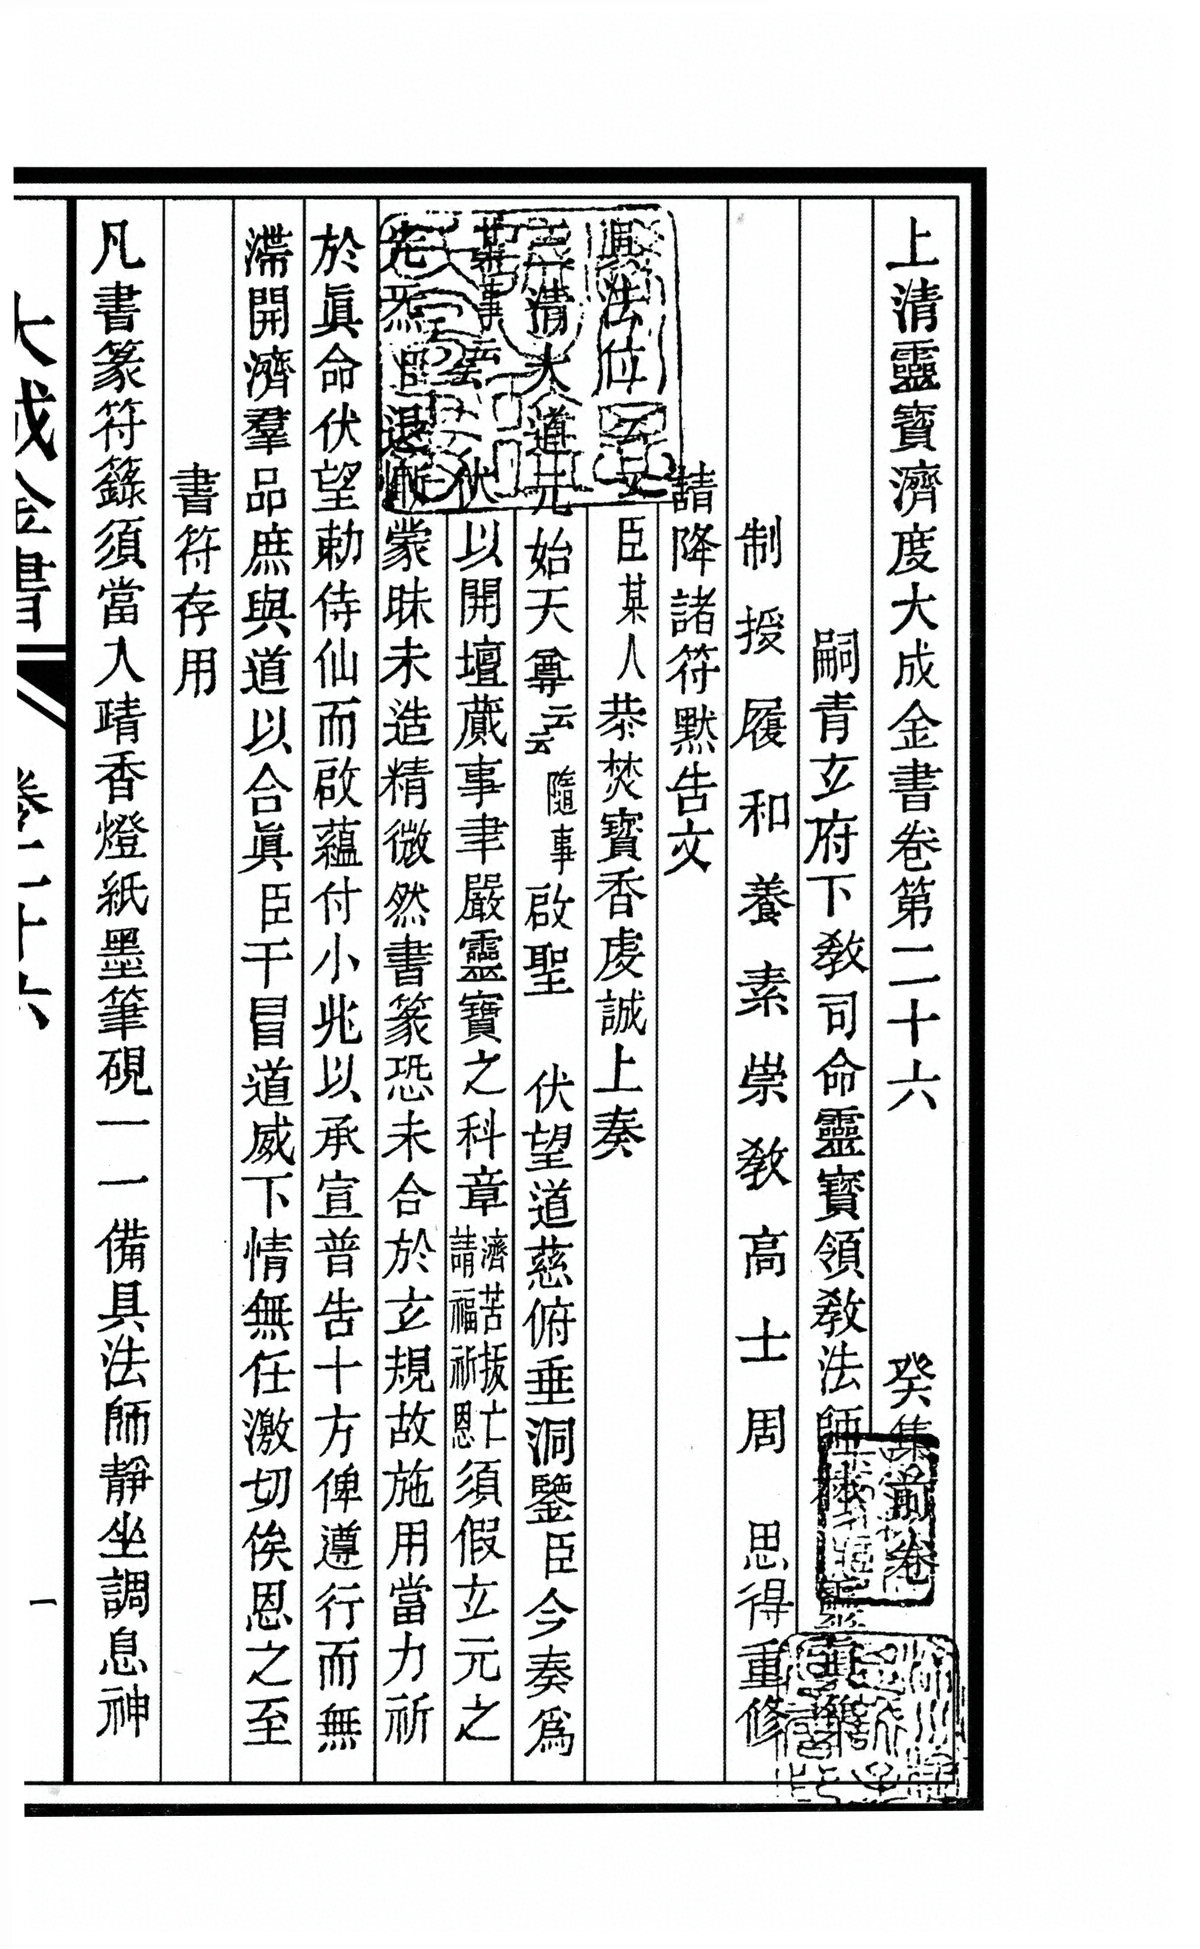 上清靈寶濟度大成金書卷第二十六 癸集前卷
嗣青玄府下教司命靈寶領教法師
制授履和養素崇教高士周 思得重修
請降諸符默告文
具法位云云臣某人恭焚寶香虔誠上奏
三清大道元始天尊云云隨事啟聖 伏望道慈俯垂洞鑒臣今奏爲
某事云云伏以開壇蕆事聿嚴靈寶之科章濟苦拔亡請福祈恩須假玄元之
先炁臣退慚蒙昧未造精微然書篆恐未合於玄規故施用當力祈
於眞命伏望勅侍仙而啟蘊付小兆以承宣普告十方俾遵行而無
滯開濟羣品庶與道以合眞臣干冒道威下情無任激切俟恩之至
書符存用
凡書篆符籙須當入靖香燈紙墨筆硯一一備具法師靜坐調息神
大成金書 卷二十六 一